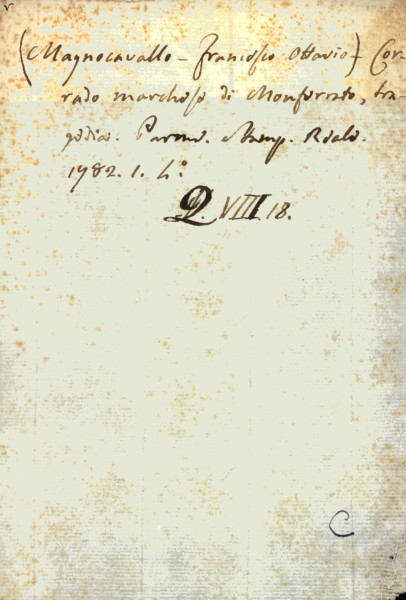 (Magnocavallo - Francesco Ottavio) Cor-
rado marchese di Monferrato, tra-
gedia. Parma. Stamp. Reale.
1782. 1. 4°.
Q. VIII 18.
C